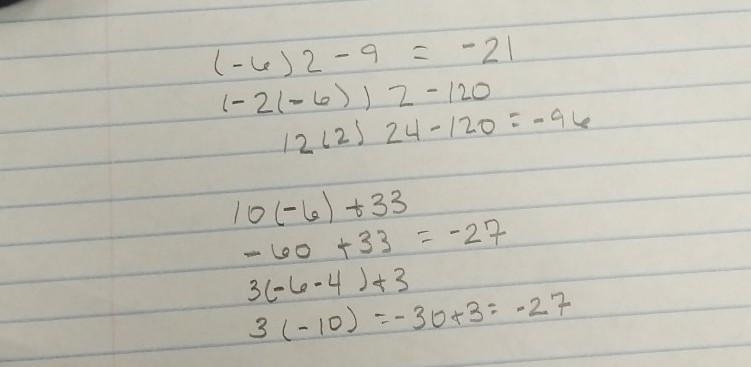 (-6)2-9 = -21
(-2(-6))2-120
12(2) 24-120=-96
10(-6)+33
-60+33=-27
3(-6-4)+3
3(-10)=-30+3=-27